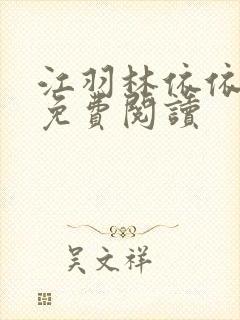 江羽林依依
免費閱讀
吴文祥